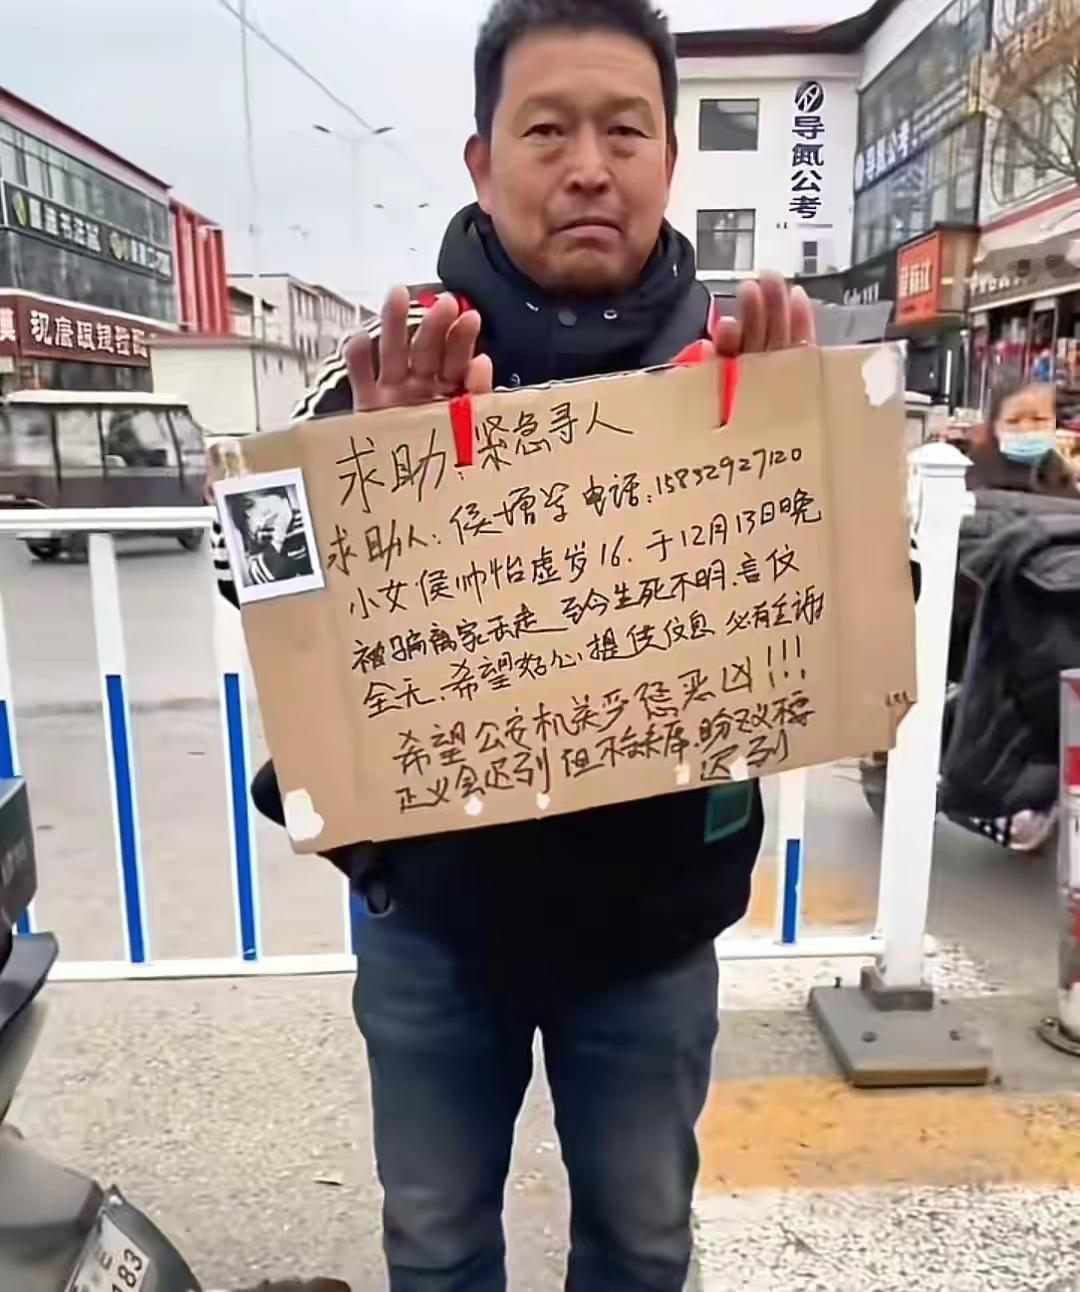 导氮公考
求助:紧急寻人
求助人:侯增军 电话:15832927120
小女侯帅怡虚岁16.于12月13日晚
被骗离家出走 至今生死不明.音仪
全无.希望好心提供信息 必有重谢
希望公安机关严惩恶凶!!!
正义会迟到 但不会缺席.盼正义不要
迟到
183